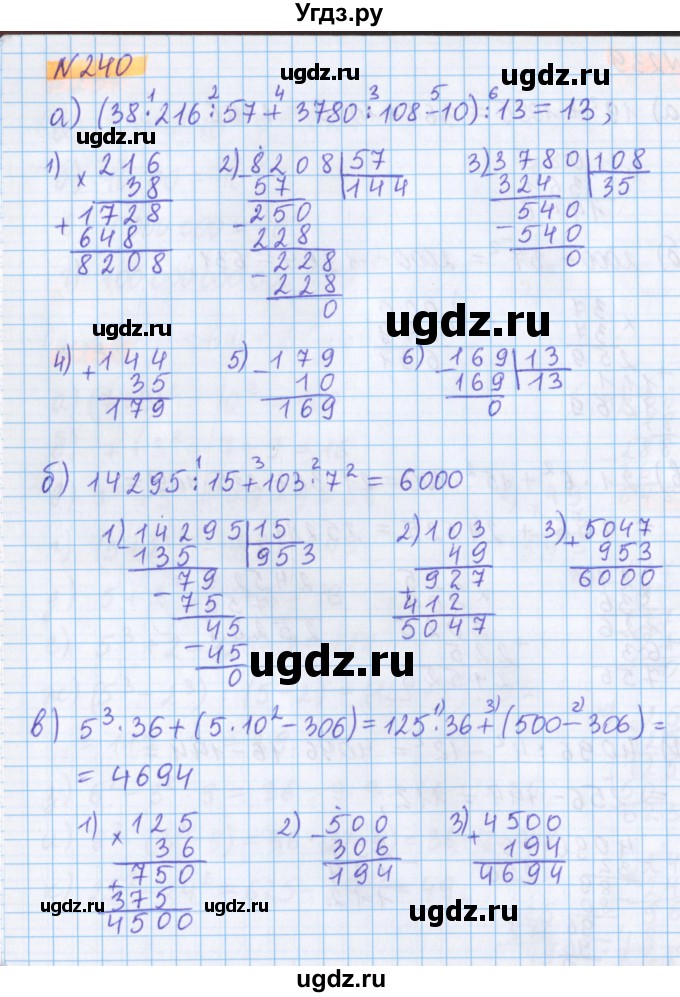 Угдз.ру
№ 240
ugdz.ru ugdz.ru
1 2 4 3 5 6
а) (38 · 216 : 57 + 3780 : 108 - 10) : 13 = 13;
ugdz.ru
1) 216 2) 8208 | 57 3) 3780 | 108
× 38 - 57 144 - 324 35
+ 1728 - 250 - 540
648 228 540
8208 - 228 0
228
0
ugdz.ru ugdz.ru
4) + 144 5) - 179 6) - 169 | 13
35 10 169 13
179 169 0
1 3 2
б) 14295 : 15 + 103 · 7² = 6000
1) - 14295 | 15 2) 103 3) + 5047
135 953 49 953
- 79 + 927 6000
75 412
- 45 5047
45
0
ugdz.ru ugdz.ru
1) 3) 2)
в) 5³ · 36 + (5 · 10² - 306) = 125 · 36 + (500 - 306) =
= 4694
1) × 125 2) - 500 3) + 4500
36 306 194
+ 750 194 4694
375
4500
ugdz.ru ugdz.ru ugdz.ru ugdz.ru
ugdz.ru